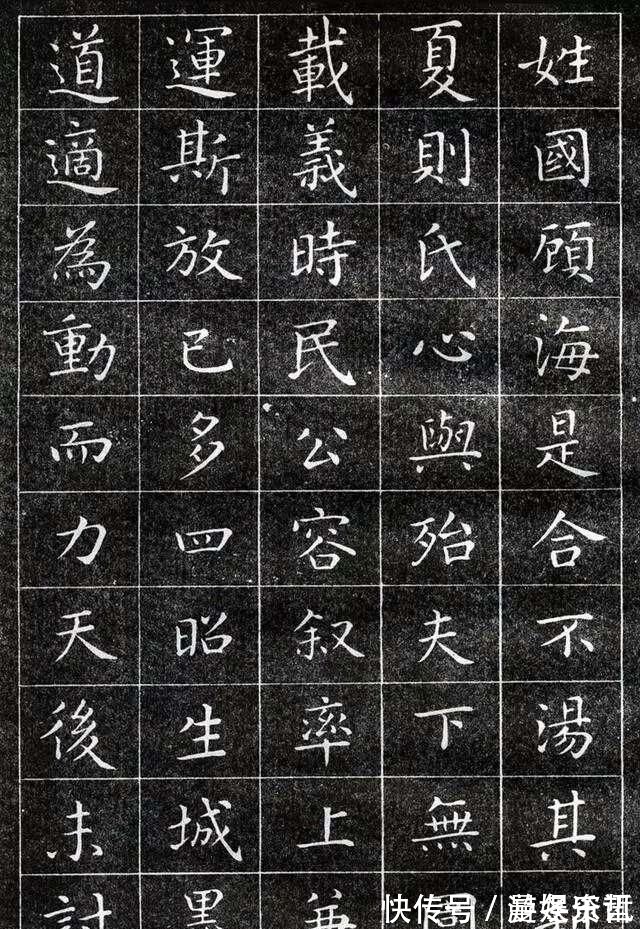 姓國頋海是合不湯其
夏則氏心與殆夫下無
載義時民公容叙率上
運斯放已多四昭生城
道適為動而力天後未討
快传号／